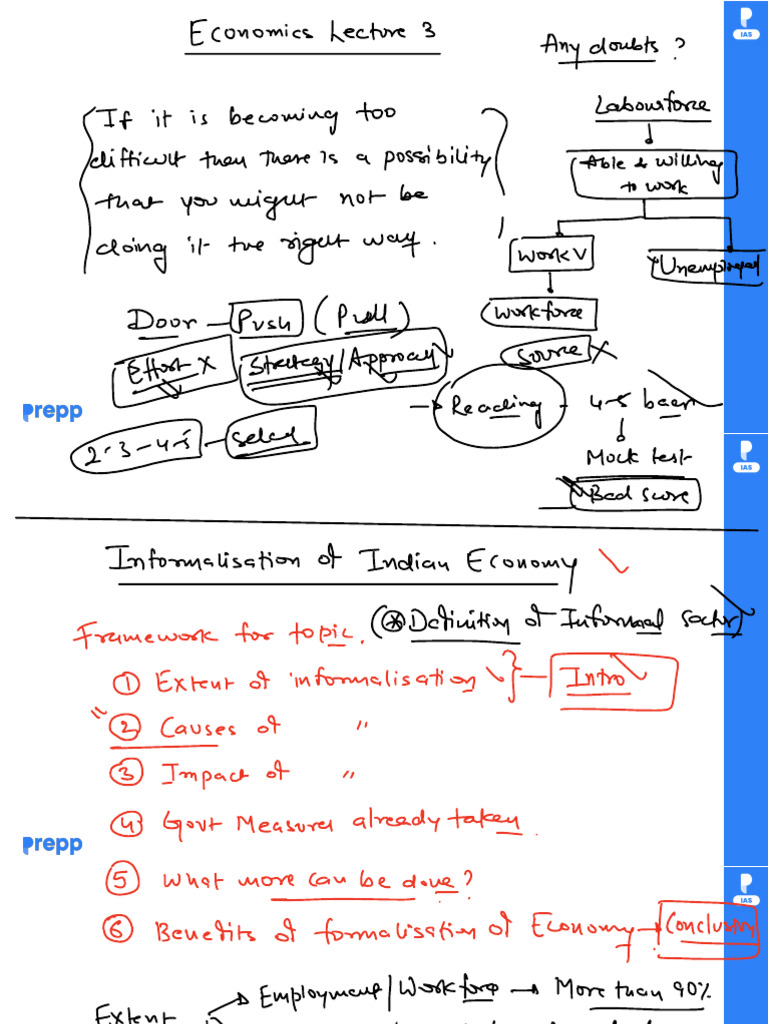 Economics Lecture 3
Any doubts?
If it is becoming too
difficult then there is a possibility
that you might not be
doing it the right way.
Labourforce
Able & willing
to work
Work
Unemployed
Workforce
Door — Push (Pull)
Effort X Strategy/Approach
Source X
Reading - 4-5 baar
Mock test
Bad score
2-3-4-5 - select
prepp
P
IAS
Informalisation of Indian Economy
(* Definition of Informal sector)
Framework for topic.
① Extent of informalisation } — Intro
② Causes of "
③ Impact of "
④ Govt Measures already taken
⑤ What more can be done?
⑥ Benefits of formalisation of Economy → Conclusion
prepp
P
IAS
P
IAS
Extent → Employment/Workforce → More than 90%